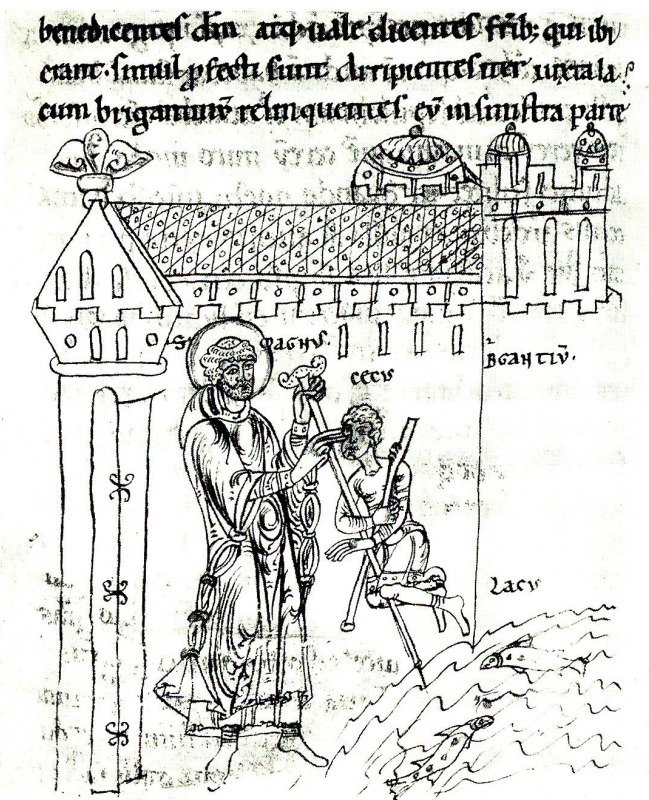 benedicentes dm̄ atq; uale dicentes frīb; qui ibi
erant. simul ꝓfecti sunt Arripientes iter iuxta la
cum brigantinū relinquentes eū in sinistra parte
S MAGNVS.
CECVS
BGANTIV̄.
LACV